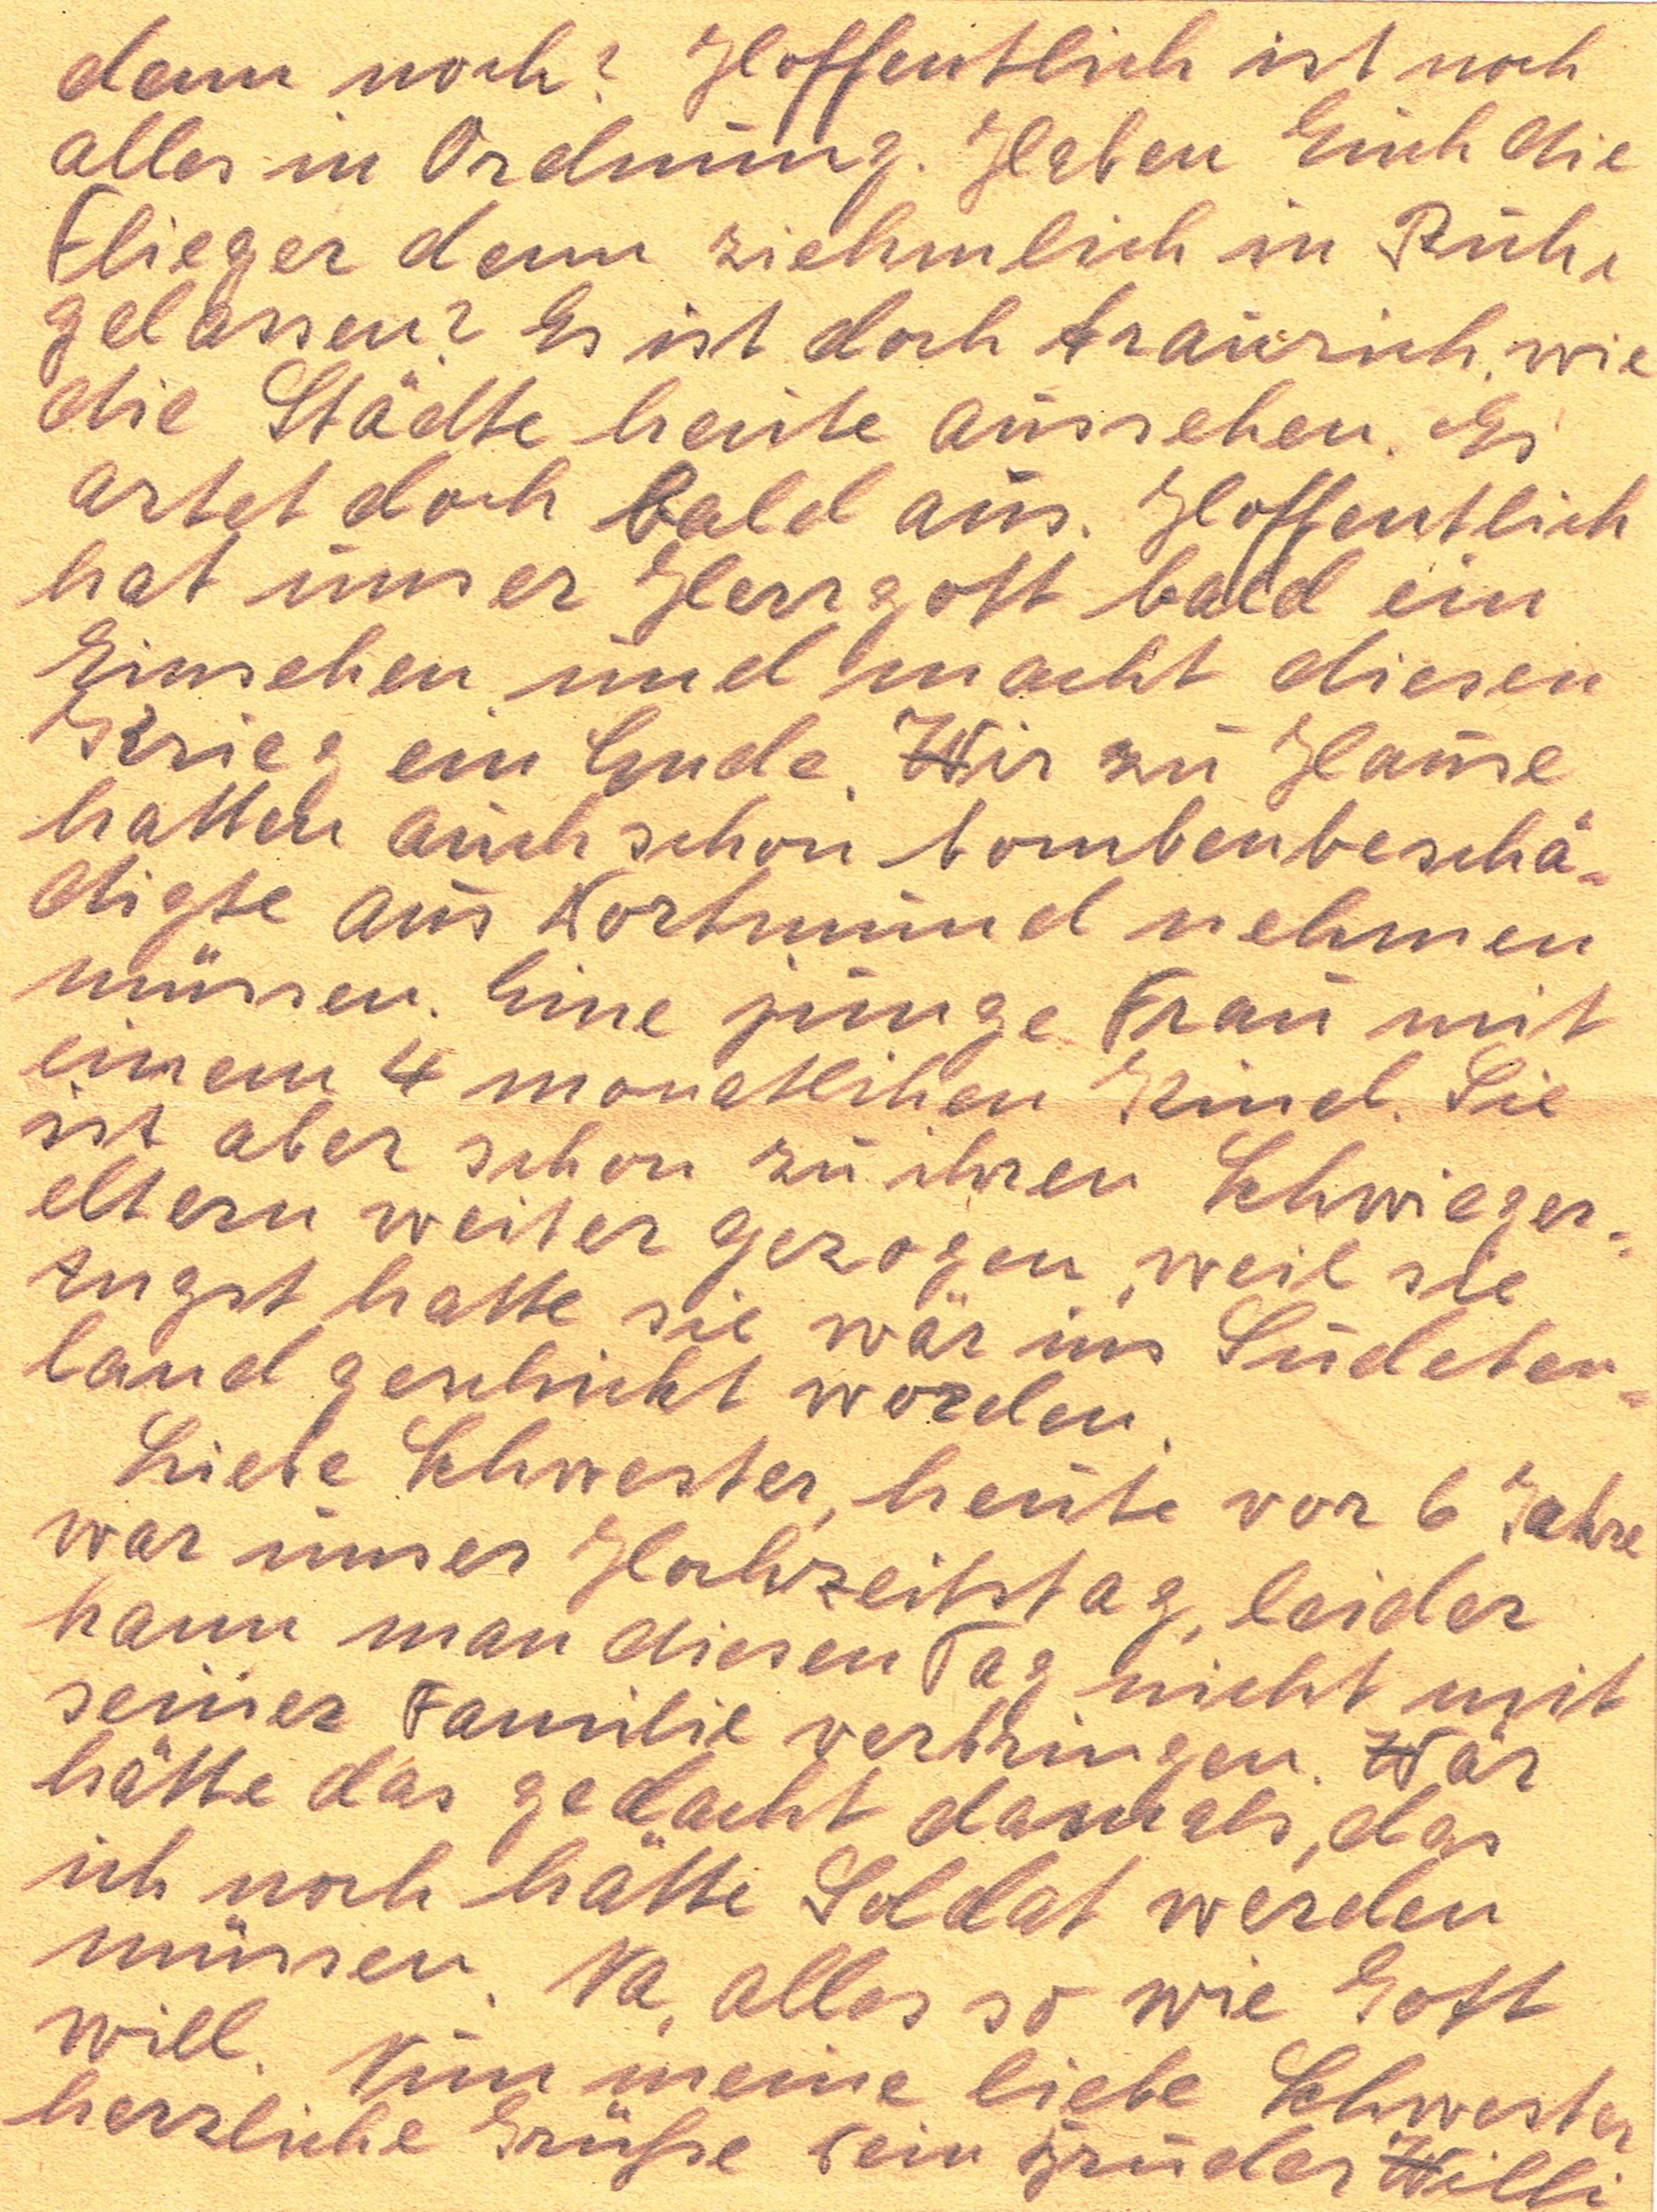 denn noch? Hoffentlich ist noch
alles in Ordnung. Haben Euch die
Flieger denn ziehmlich in Ruhe
gelassen? Es ist doch traurich, wie
die Städte heute aussehen. Es
artet doch bald aus. Hoffentlich
hat unser Herrgott bald ein
Einsehen und macht diesen
Krieg ein Ende. Wir zu Hause
hatten auch schon bombenbeschä-
digte aus Dortmund nehmen
müssen. Eine junge Frau mit
einem 4 monatlichen Kind. Sie
ist aber schon zu ihren Schwieger-
eltern weiter gezogen, weil sie
Angst hatte sie wär ins Sudeten-
land geschickt worden.
Liebe Schwester, heute vor 6 Jahre
war unser Hochzeitstag, leider
kann man diesen Tag nicht mit
seiner Familie verbringen. Wär
hätte das gedacht damals, das
ich noch hätte Soldat werden
müssen. Na, alles so wie Gott
will. Nun meine liebe Schwester
herzliche Grüße Dein Bruder Willi